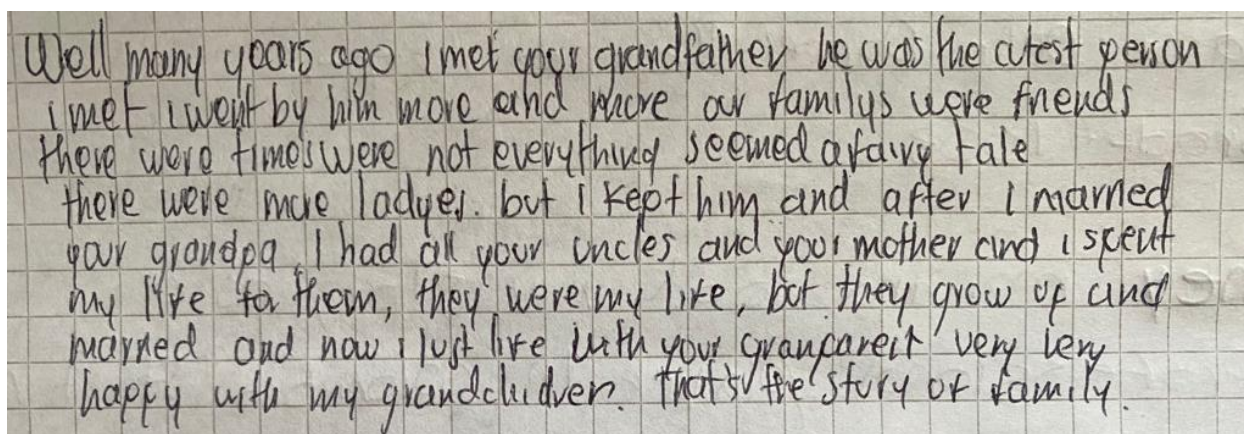 Well many years ago i met your grandfather he was the cutest person
i met i went by him more and more our familys were friends
there were times were not everything seemed a fairy tale
there were more ladyes. but i kept him and after i married
your grandpa I had all your uncles and your mother and i spent
my life for them, they were my life, but they grow up and
married and now i just live with your granparent very very
happy with my grandchidren. that's the story of family.